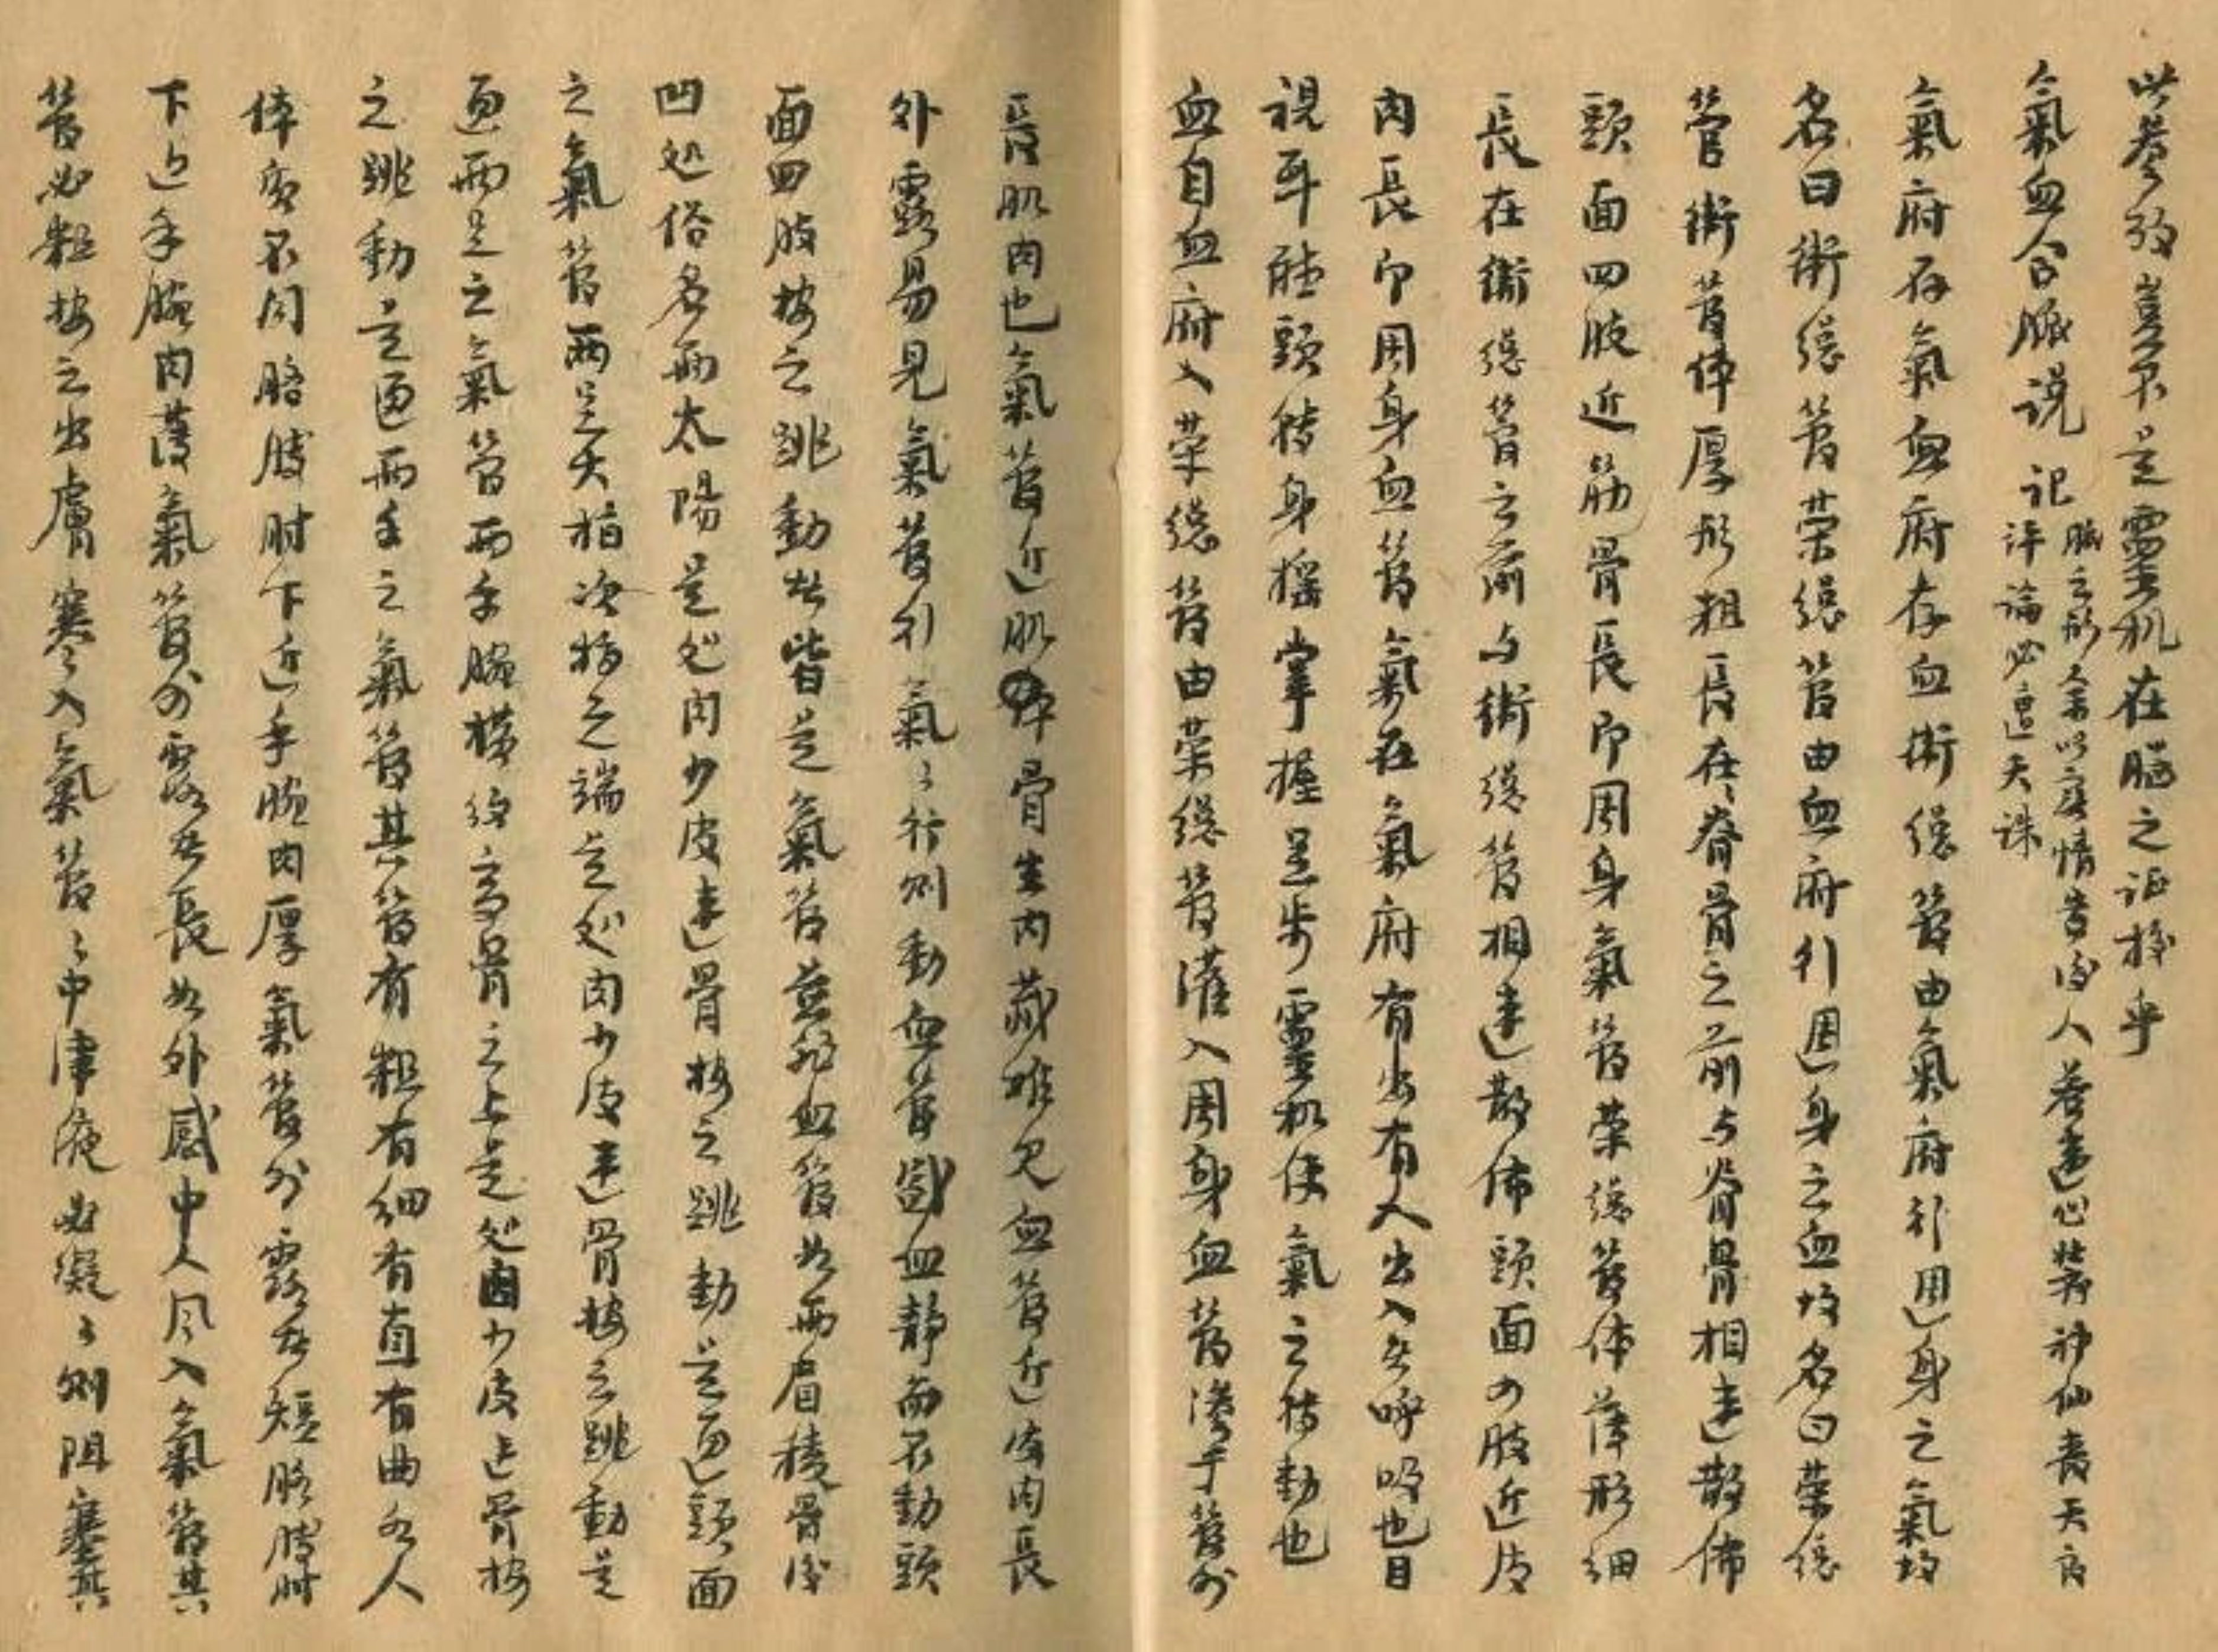 此卷效豈不是靈机在腦之証拠乎
氣血合脈說 記
脈之形余以实情告後人若違心装神仙丧天良
評論必遭天誅
氣府存氣血府存血衛総管由氣府行週身之氣故
名曰衛総管荣総管由血府行週身之血故名曰荣総
管衛管体厚形粗長在脊骨之前与脊骨相連散佈
頭面四肢近筋骨長即周身氣管荣総管体薄形細
長在衛総管之前与衛総管相連散佈頭面四肢近皮
肉長即周身血管氣在氣府有出有入出入為呼吸也目
視耳聴頭转身摇掌握足步靈机使氣之转動也
血自血府入荣総管由荣総管灌入周身血管滲于管外
長肌肉也氣管近肌体骨生内藏难见血管近皮肉長
外露易見氣管行氣〻行則動血管盛血静而不動頭
面四肢按之跳動者皆是氣管並非血管如两眉稜骨後
凹处俗名两太陽是处肉少皮連骨按之跳動是通頭面
之氣管两足大指次指之端是处肉少皮連骨按之跳動是
通两足之氣管两手腕横纹高骨之上是处肉少皮連骨按
之跳動是通两手之氣管其管有粗有细有直有曲各人
体質不同胳膊肘下近手腕肉厚氣管外露者短胳膊肘
下近手腕肉薄氣管外露者長如外感中人风入氣管其
管必粗按之出膚寒入氣管〻中津液必凝〻則阻塞其